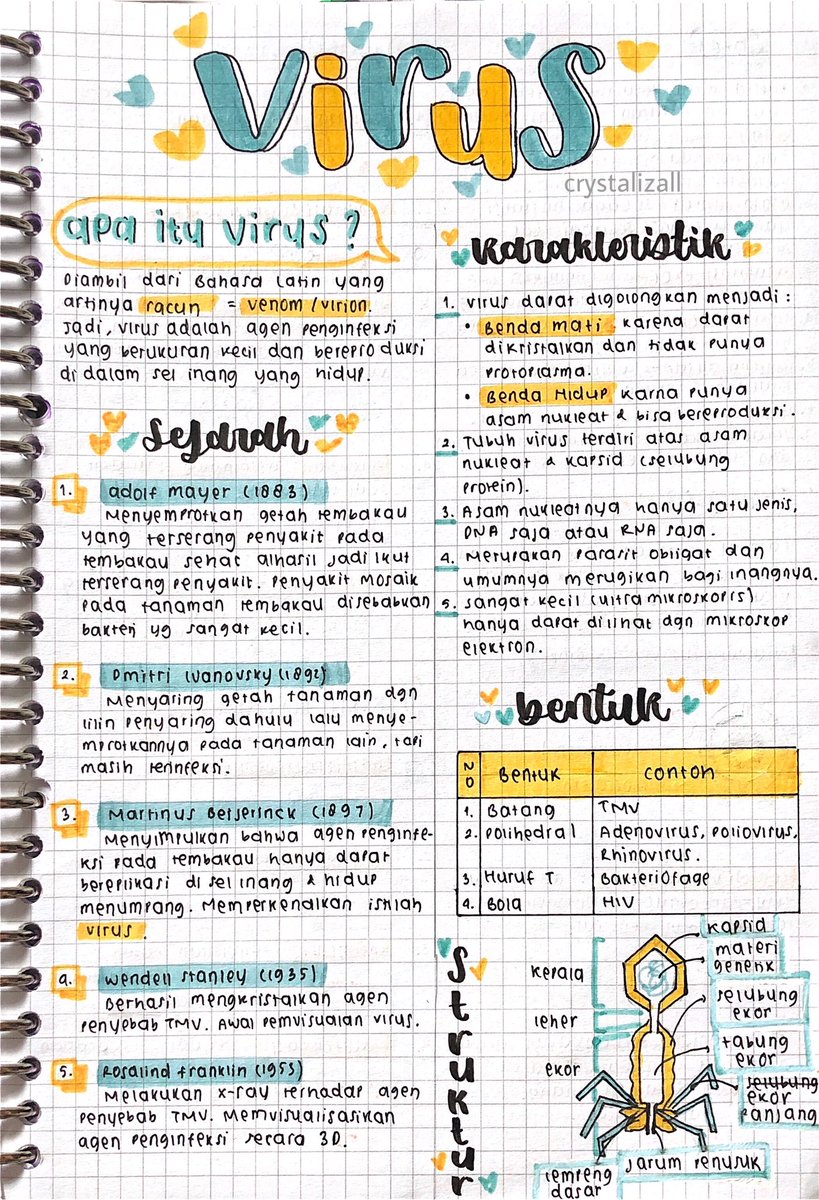 Virus
crystalizall
apa itu virus?
Diambil dari Bahasa Latin yang
artinya racun = venom/virion.
Jadi, virus adalah agen penginfeksi
yang berukuran kecil dan bereproduksi
di dalam sel inang yang hidup.
Sejarah
1. adolf mayer (1883)
Menyemprotkan getah tembakau
yang terserang penyakit pada
tembakau sehat alhasil jadi ikut
terserang penyakit. Penyakit Mosaik
pada tanaman tembakau disebabkan
bakteri yg sangat kecil.
2. Dmitri Ivanovsky (1892)
Menyaring getah tanaman dgn
lilin penyaring dahulu lalu menye-
mprotkannya pada tanaman lain, tapi
masih terinfeksi.
3. Martinus Beijerinck (1897)
Menyimpulkan bahwa agen penginfe-
ksi pada tembakau hanya dapat
bereplikasi di sel inang & hidup
menumpang. Memperkenalkan istilah
virus.
4. Wendell Stanley (1935)
Berhasil mengkristalkan agen
penyebab TMV. Awal pemvisualan virus.
5. Rosalind Franklin (1953)
Melakukan x-ray terhadap agen
penyebab TMV. Memvisualisasikan
agen penginfeksi secara 3D.
Karakteristik
1. Virus dapat digolongkan menjadi :
• Benda mati karena dapat
dikristalkan dan tidak punya
protoplasma.
• Benda Hidup karna punya
asam nukleat & bisa bereproduksi.
2. Tubuh virus terdiri atas asam
nukleat & kapsid (selubung
protein).
3. Asam nukleatnya hanya satu jenis,
DNA saja atau RNA saja.
4. Merupakan parasit obligat dan
umumnya merugikan bagi inangnya.
5. Sangat kecil (ultra mikroskopis)
hanya dapat dilihat dgn mikroskop
elektron.
bentuk
NO Bentuk Contoh
1. Batang TMV
2. Polihedral Adenovirus, Poliovirus,
Rhinovirus.
3. Huruf T Bakteriofage
4. Bola HIV
Struktur
kepala
leher
ekor
kapsid
materi
genetik
selubung
ekor
tabung
ekor
selubung
ekor
panjang
jarum penusuk
lempeng
dasar